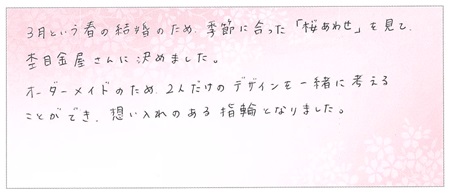 3月という春の結婚のため、季節に合った「桜あわせ」を見て、
杢目金屋さんに決めました。
オーダーメイドのため、2人だけのデザインを一緒に考える
ことができ、想い入れのある指輪となりました。